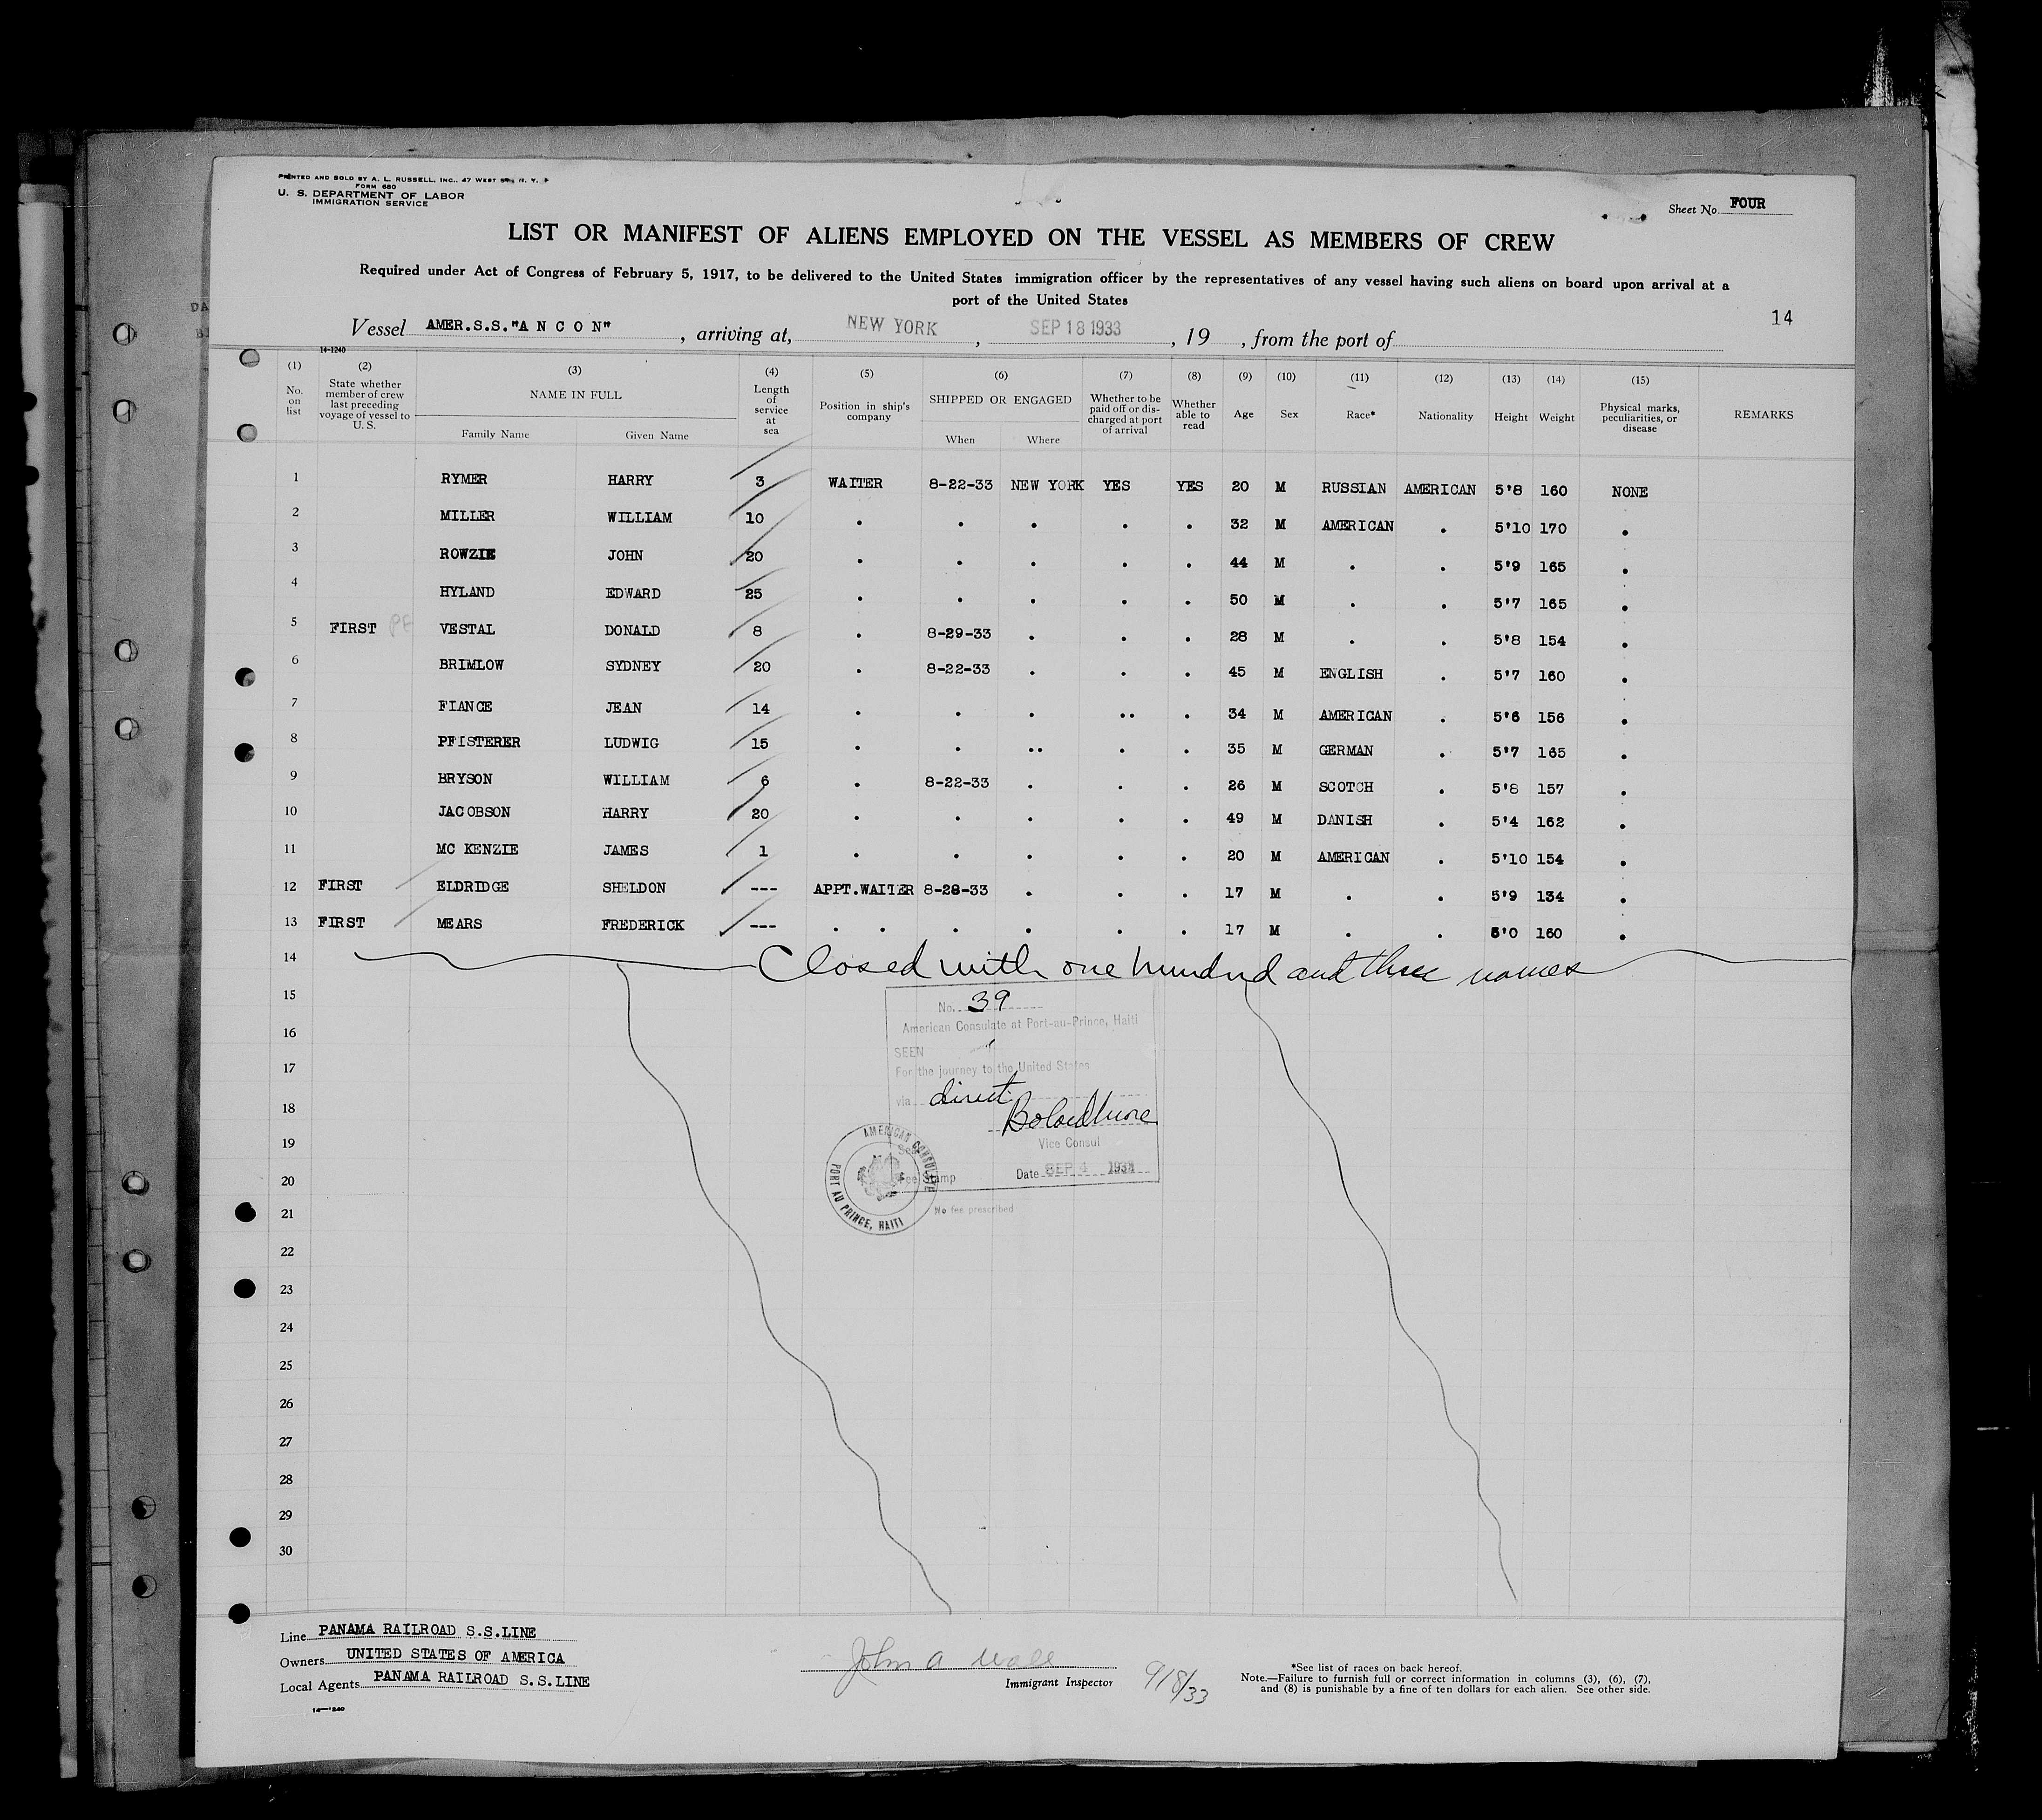 PRINTED AND SOLD BY A. L. RUSSELL, INC., 47 WEST ST., N. Y.
FORM 680
U. S. DEPARTMENT OF LABOR
IMMIGRATION SERVICE
Sheet No. FOUR
LIST OR MANIFEST OF ALIENS EMPLOYED ON THE VESSEL AS MEMBERS OF CREW
Required under Act of Congress of February 5, 1917, to be delivered to the United States immigration officer by the representatives of any vessel having such aliens on board upon arrival at a
port of the United States
14
Vessel AMER.S.S."A N C O N", arriving at, NEW YORK, SEP 18 1933, 19 , from the port of
14-1240
(1) No. on list (2) State whether member of crew last preceding voyage of vessel to U.S. (3) NAME IN FULL Family Name Given Name (4) Length of service at sea (5) Position in ship's company (6) SHIPPED OR ENGAGED When Where (7) Whether to be paid off or discharged at port of arrival (8) Whether able to read (9) Age (10) Sex (11) Race* (12) Nationality (13) Height (14) Weight (15) Physical marks, peculiarities, or disease REMARKS
1 RYMER HARRY 3 WAITER 8-22-33 NEW YORK YES YES 20 M RUSSIAN AMERICAN 5'8 160 NONE
2 MILLER WILLIAM 10 . . . . . 32 M AMERICAN . 5'10 170 .
3 ROWZIE JOHN 20 . . . . . 44 M . . 5'9 165 .
4 HYLAND EDWARD 25 . . . . . 50 M . . 5'7 165 .
5 FIRST VESTAL DONALD 8 . 8-29-33 . . . 28 M . . 5'8 154 .
6 BRIMLOW SYDNEY 20 . 8-22-33 . . . 45 M ENGLISH . 5'7 160 .
7 FIANCE JEAN 14 . . . .. . 34 M AMERICAN . 5'6 156 .
8 PFISTERER LUDWIG 15 . . .. . . 35 M GERMAN . 5'7 165 .
9 BRYSON WILLIAM 6 . 8-22-33 . . . 26 M SCOTCH . 5'8 157 .
10 JACOBSON HARRY 20 . . . . . 49 M DANISH . 5'4 162 .
11 MC KENZIE JAMES 1 . . . . . 20 M AMERICAN . 5'10 154 .
12 FIRST ELDRIDGE SHELDON --- APPT.WAITER 8-28-33 . . . 17 M . . 5'9 134 .
13 FIRST MEARS FREDERICK --- . . . . . . 17 M . . 6'0 160 .
14 Closed with one hundred and three names
15
No. 39
American Consulate at Port-au-Prince, Haiti
16
SEEN
17
For the journey to the United States
18
via direct
19
Vice Consul
AMERICAN CONSULATE
PORT AU PRINCE, HAITI
Seal
20
Fee Stamp Date SEP 4 1933
21
No fee prescribed
22
23
24
25
26
27
28
29
30
Line PANAMA RAILROAD S.S.LINE
Owners UNITED STATES OF AMERICA
Local Agents PANAMA RAILROAD S.S.LINE
14-1240
John A Wall
Immigrant Inspector 9/8/33
*See list of races on back hereof.
Note.—Failure to furnish full or correct information in columns (3), (6), (7),
and (8) is punishable by a fine of ten dollars for each alien. See other side.